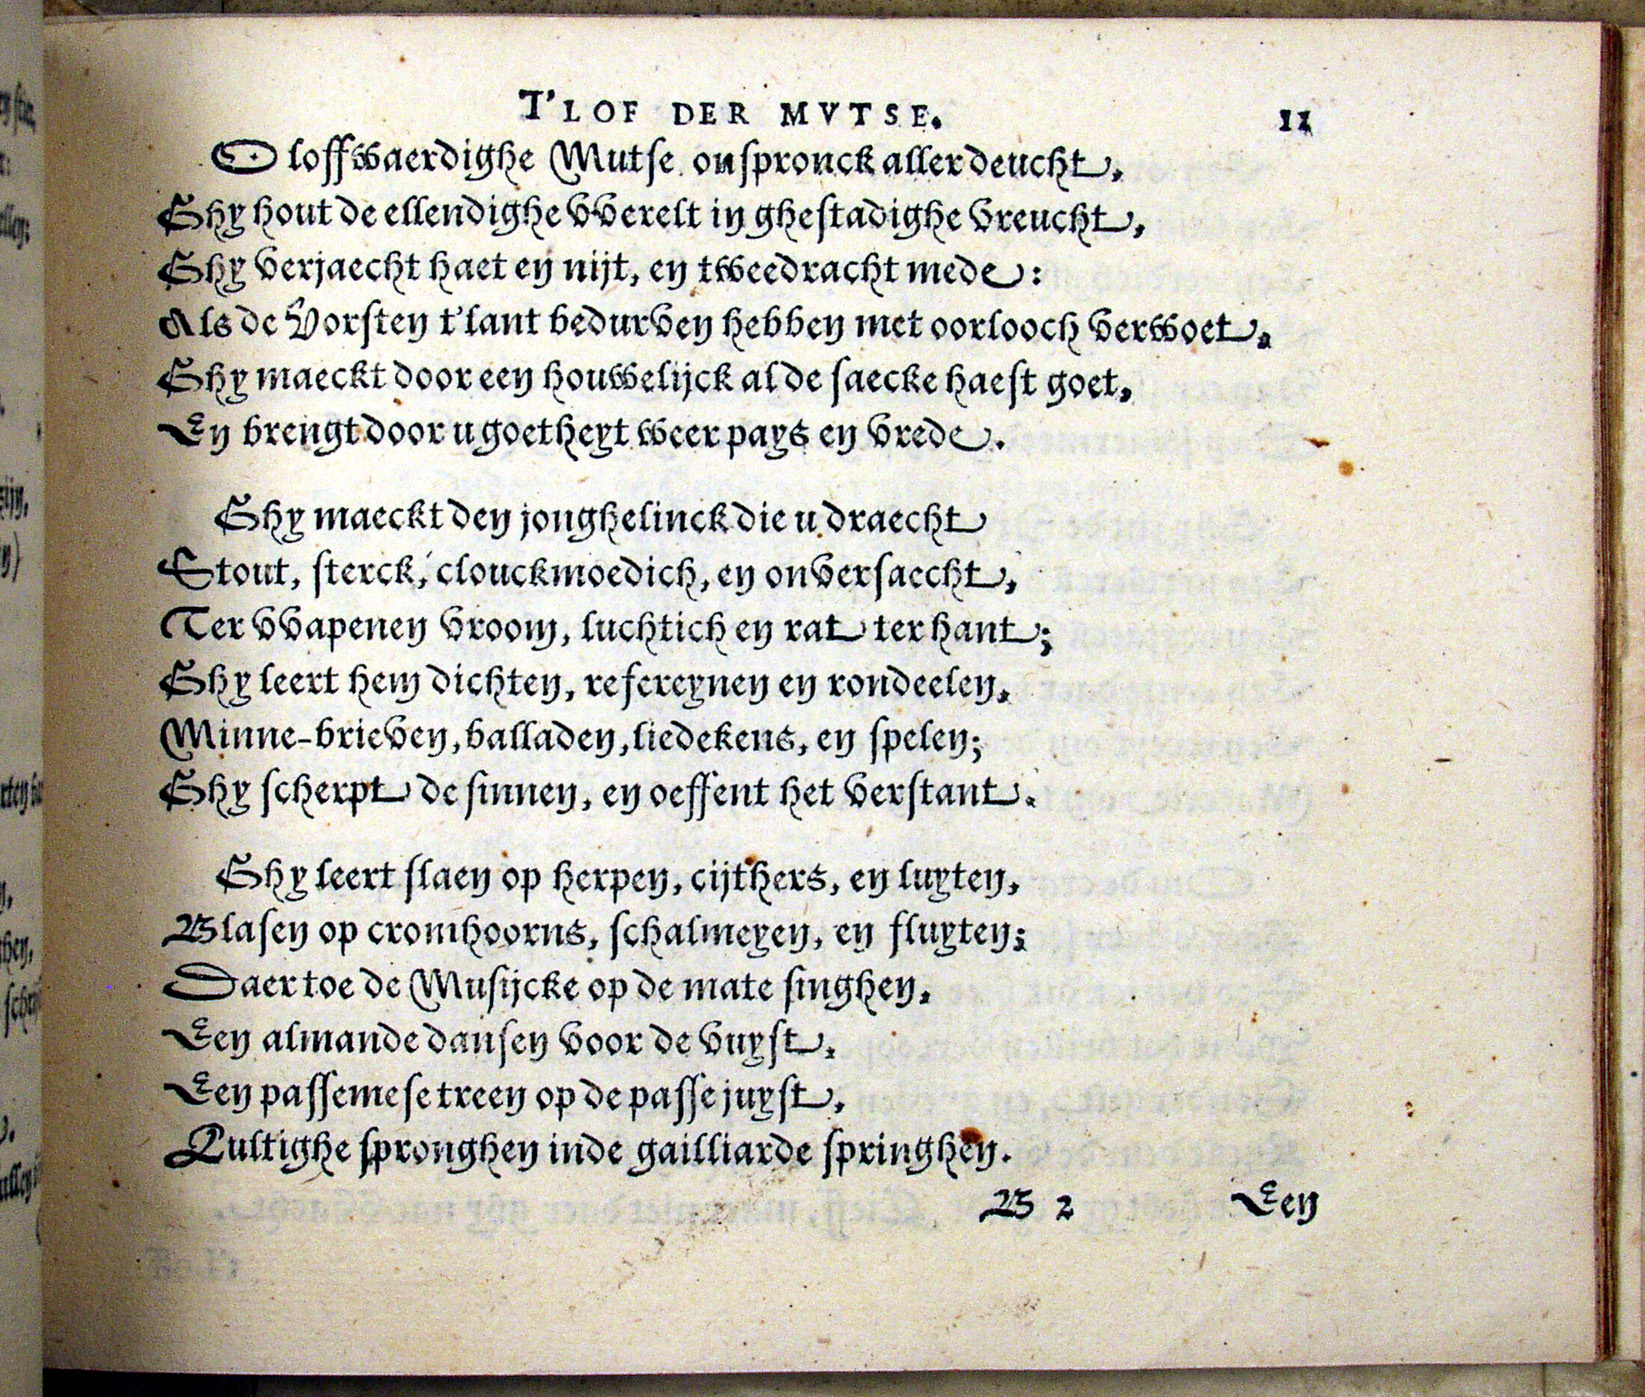 T'LOF DER MVTSE. 11
O loffwaerdighe Mutse onspronck aller deucht,
Ghy hout de ellendighe vverelt in ghestadighe vreucht,
Ghy verjaecht haet en nijt, en tweedracht mede:
Als de Vorsten t'lant bedurven hebben met oorlooch verwoet,
Ghy maeckt door een houwelijck al de saecke haest goet,
En brengt door u goetheyt weer pays en vrede.
Ghy maeckt den jonghelinck die u draecht
Stout, sterck, clouckmoedich, en onversaecht,
Ter vvapenen vroom, luchtich en rat ter hant;
Ghy leert hem dichten, refereynen en rondeelen,
Minne-brieven, balladen, liedekens, en spelen;
Ghy scherpt de sinnen, en oeffent het verstant.
Ghy leert slaen op herpen, cijthers, en luyten,
Blasen op cromhoorns, schalmeyen, en fluyten;
Daer toe de Musijcke op de mate singhen,
Een almande dansen voor de vuyst,
Een passemese treen op de passe juyst,
Lustighe spronghen inde gailliarde springhen.
B 2 Een